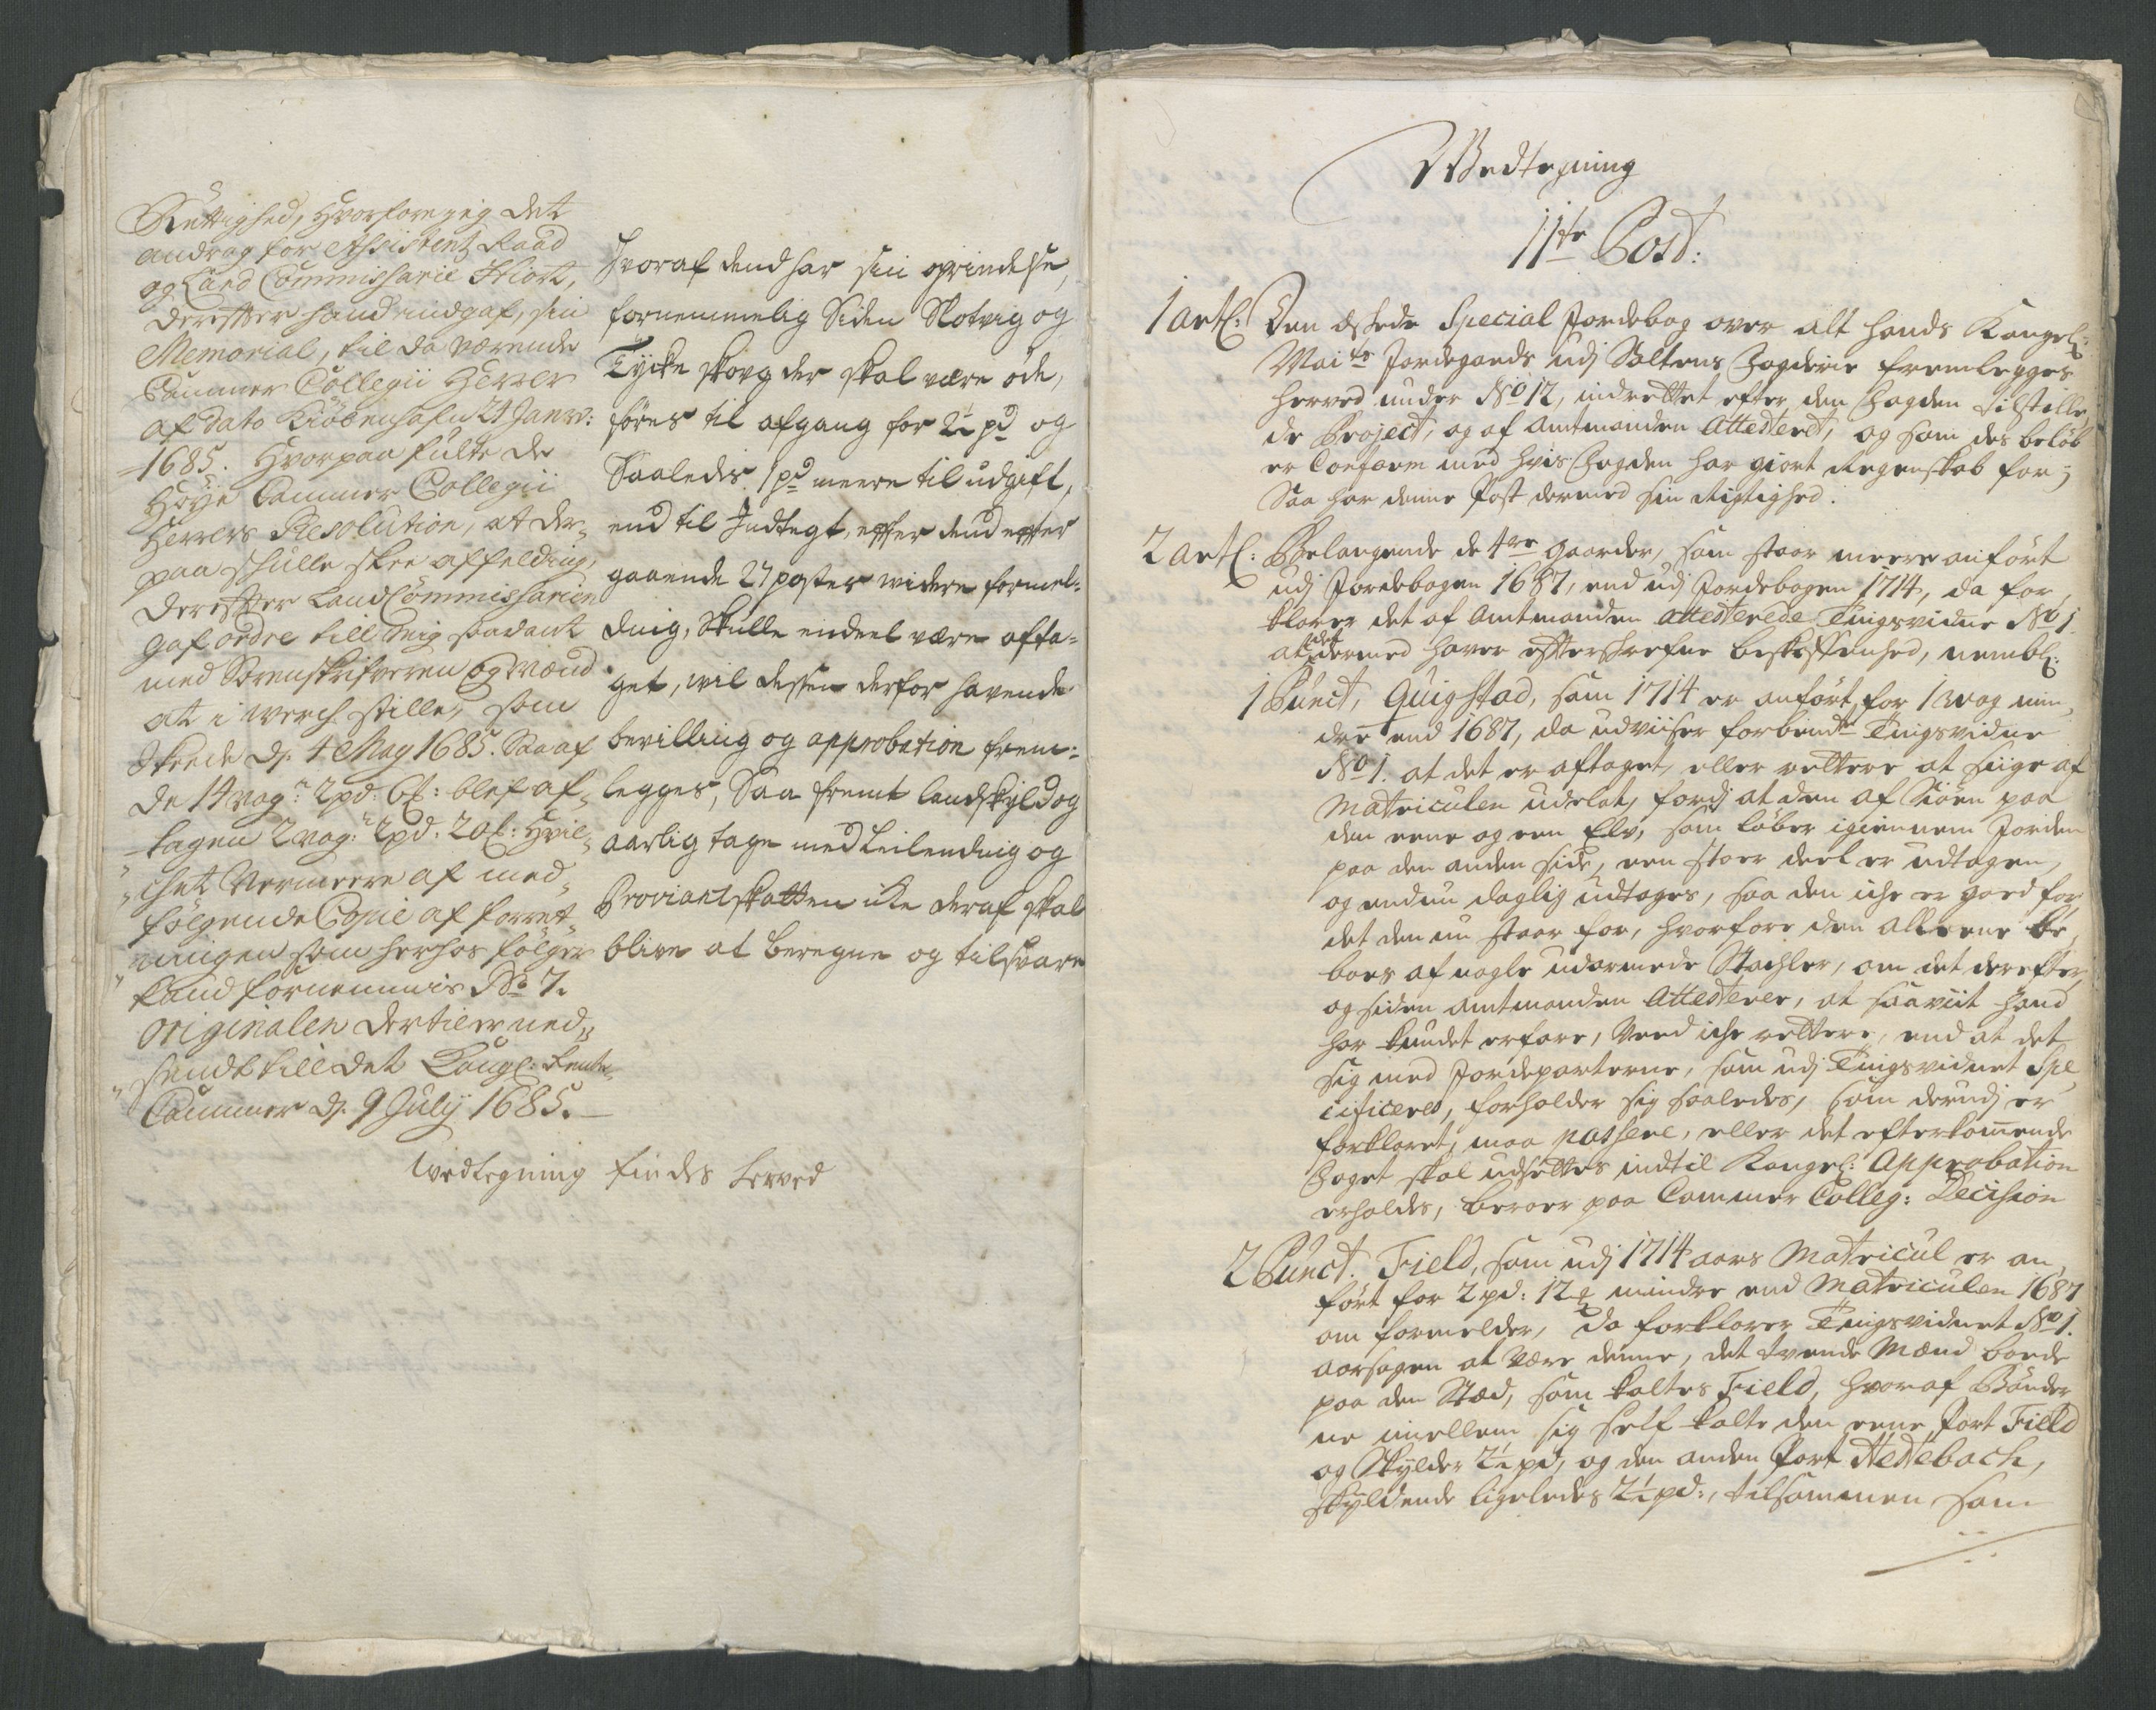 Rettighed, Hvorfore jeg det
andrag for Assistentz Raad
og Land Commissarie Hiort,
derefter hand indgaf, sin
Memorial, til da værende
Cammer Collegii Herrer
af dato Kiöbenhafn 21 Janv:
1685. Hvorpaa fulte de
Höÿe Cammer Collegii
Herrers Resolution, at der„
paa skulle skee affelding,
derefter Land Commissarien
gaf ordre till mig saadant
med Sorenskrifveren og Mænd
at i werch stille, som
skeede d. 4 May 1685. Saa af
de 14 vog: 2 pd: 6 : blef af„
tagen 2 vog: 2 pd. 20 : Hvil„
chet Vermeere af med„
fölgende Copie af forret„
ningen som herhos fölger
kand fornemmis No 7.
Originalen dertil er ned„
sendt till det Kongl: Rente„
Cammer d. 9 Julÿ 1685.
Hvoraf dend har sin oprindelse,
fornemmelig Siden Slotvig og
Tÿcke skovg der skal være öde,
föres til afgang for 2½ pd og
Saaledes 1 pd meere til udgift,
end til Indtegt, efter dend efter
gaaende 27 poster widere formel:
ding, Skulle endeel være afta=
get, wil dessen derfor havende
bevilling og approbation frem:
legges, Saa fremt landskÿld og
aarlig tage med Leilending og
Proviantskatten icke deraf skal
blive at beregne og tilsvare
Wedtegning findes herved
Wedtegning
11te Post:
1 Artl: Den æskede Special Jordebog over alt hands Kongel:
Maits Jordegods udj Saltens Fogderie fremlegges
herved under No 12, indrettet efter den Fogden tilstille„
de Project, og af Amtmanden Attesteret, og som des belöb
er Conform med hvis Fogden har giort Regenskab for;
Saa har denne Post dermed sin Rigtighed.
2 Artl: Belangende de 4re gaarder, som staar meere anfört
udj Jordebogen 1687, end udj Jordebogen 1714, da for„
klarer det af Amtmanden attesterede Tingsvidne No 1.
at det dermed haver efterskrefne beskaffenhed, nembl:
1 Punct, Quigstad, som 1714 er anfört for 1 wog min„
dre end 1687, da udviiser forbemte Tingsvidne
No 1. at det er aftaget, eller rettere at siige af
Matriculen udelat, fordj at den af Siöen paa
den eene og een Elv, som löber igiennem Jorden
paa den anden side, een stoer deel er udtagen,
og endnu daglig udtages, saa den iche er goed for
det den nu staar for, hvorfore den alleene be„
boes af nogle udarmede Stachler, om det derefter,
og siden Amtmanden Attesterer, at saaviit hand
har kundet erfare, Veed iche rettere, end at det
sig med Jordeparterne, som udj Tingsvidnet Spe„
cificeres, forholder sig saaledes, som derudj er
forklaret, maa passere, eller det efterkommende
Foget skal udsettes indtil Kongel: Approbation
erholdes, beroer paa Cammer Colleg: Decision
2 Punct. Field, som udj 1714 aars Matricul er an„
fört for 2 pd: 12 mindre end Matriculen 1687
om formelder, da forklarer Tingsvidnet No 1.
aarsagen at Være denne, det tvende Mænd boede
paa den Stæd, som kaltes Field, hvoraf Bönder„
ne imellem sig self kalte den eene Part Field
og Skylder 2½ pd, og den anden Part Hedebach,
skÿldende ligeledes 2½ pd:, tilsammen som